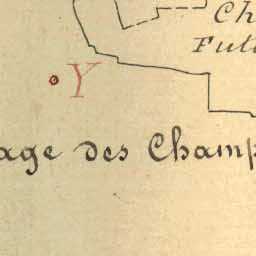 Ch
Fut
Y
age des Champ